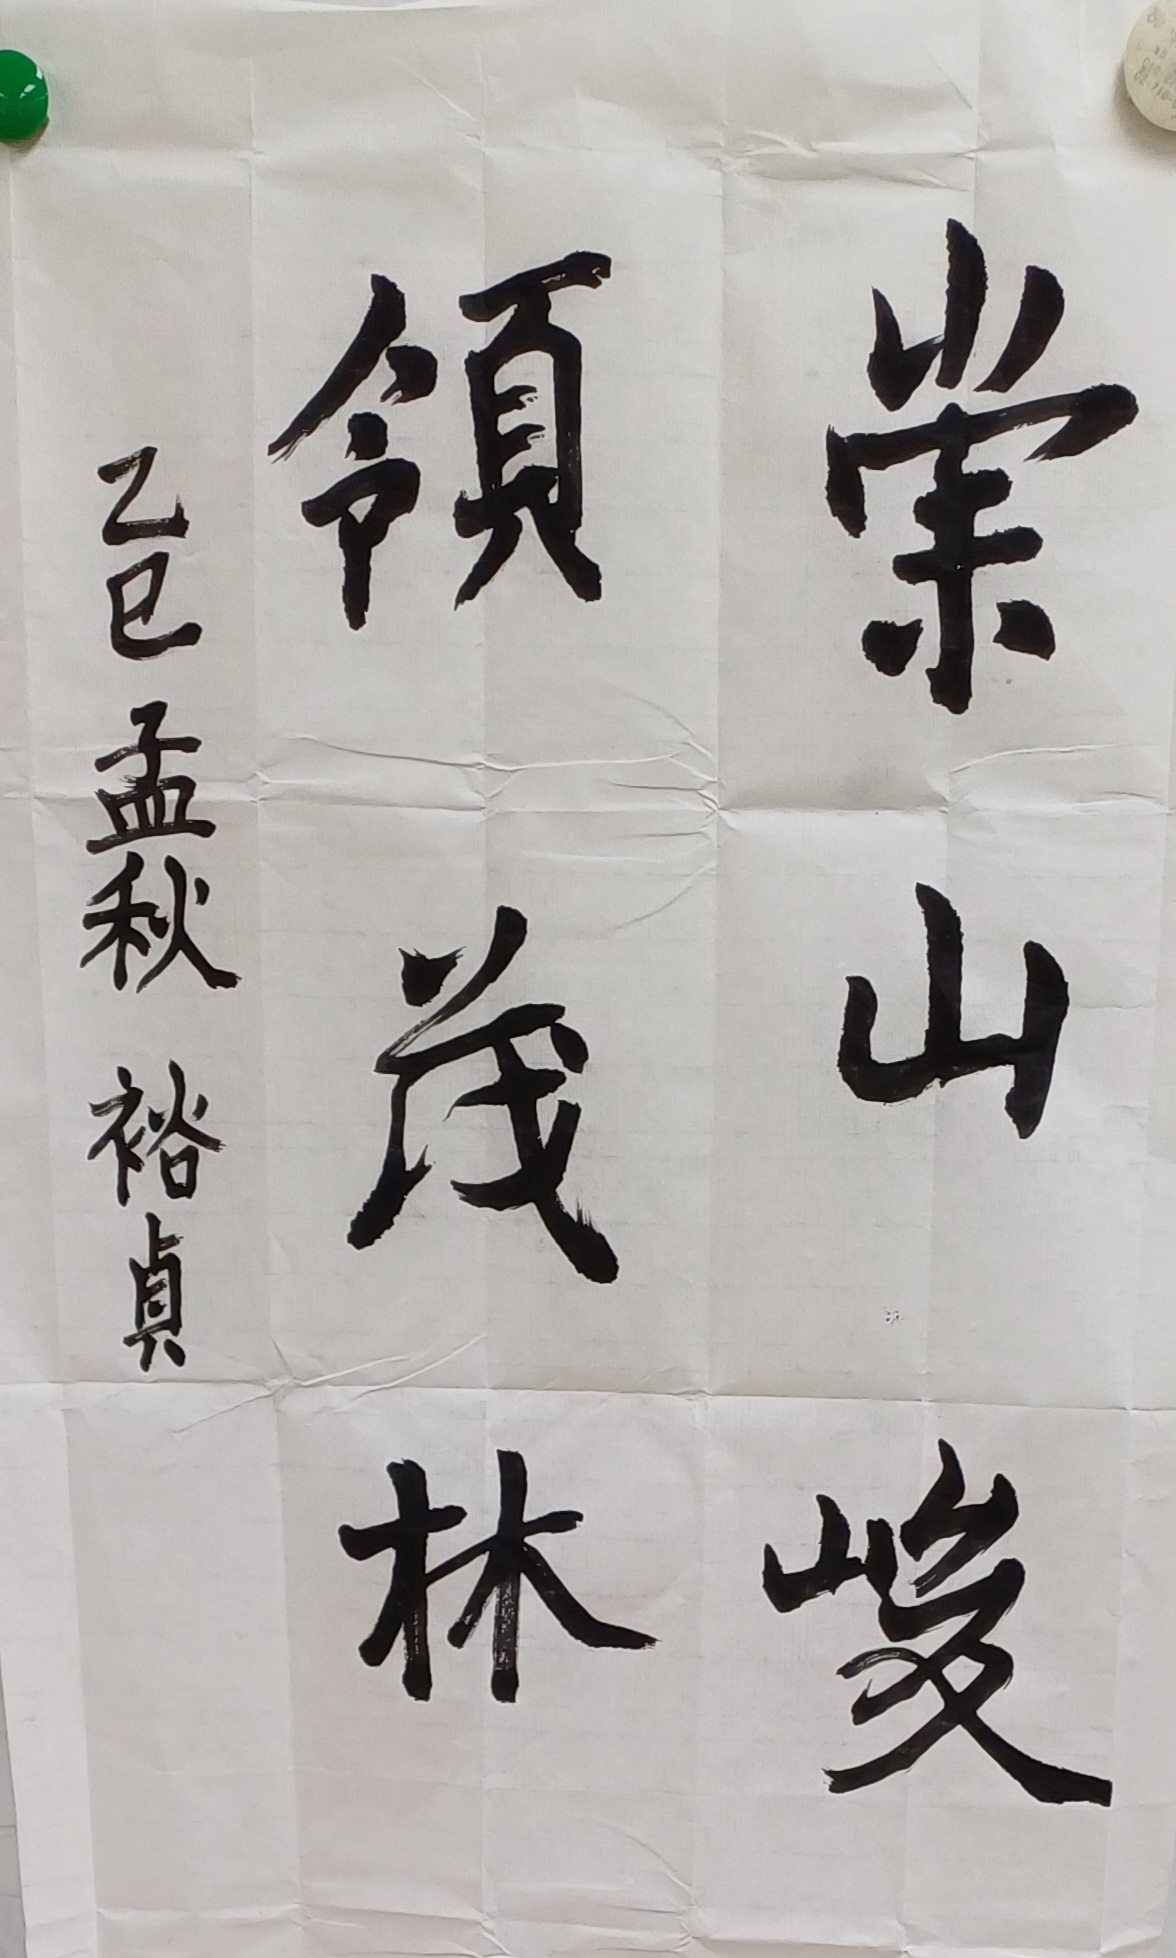 崇山峻
領茂林
乙巳孟秋 裕貞